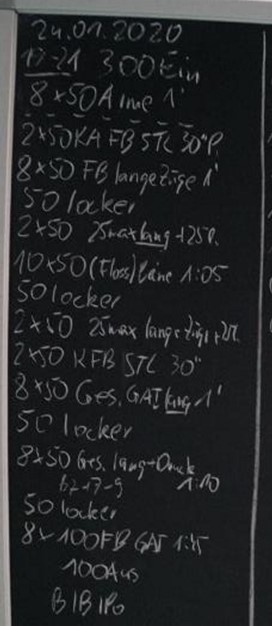 24.01.2020
19-21 300 Ein
8x50 Arme 1'
2x50 KA FB STL 30"P.
8x50 FB lange Züge 1'
50 locker
2x50 25max lang + 25L
10x50 (Floss) Beine 1:05
50 locker
2x50 25max lange Züge + 25L
2x50 KFB STL 30"
8x50 Ges. GAT lang 1'
50 locker
8x50 Ges. lang + Druck
1:10
50 locker
8x100 FB GAT 1:45
100 Aus
BIBIPo